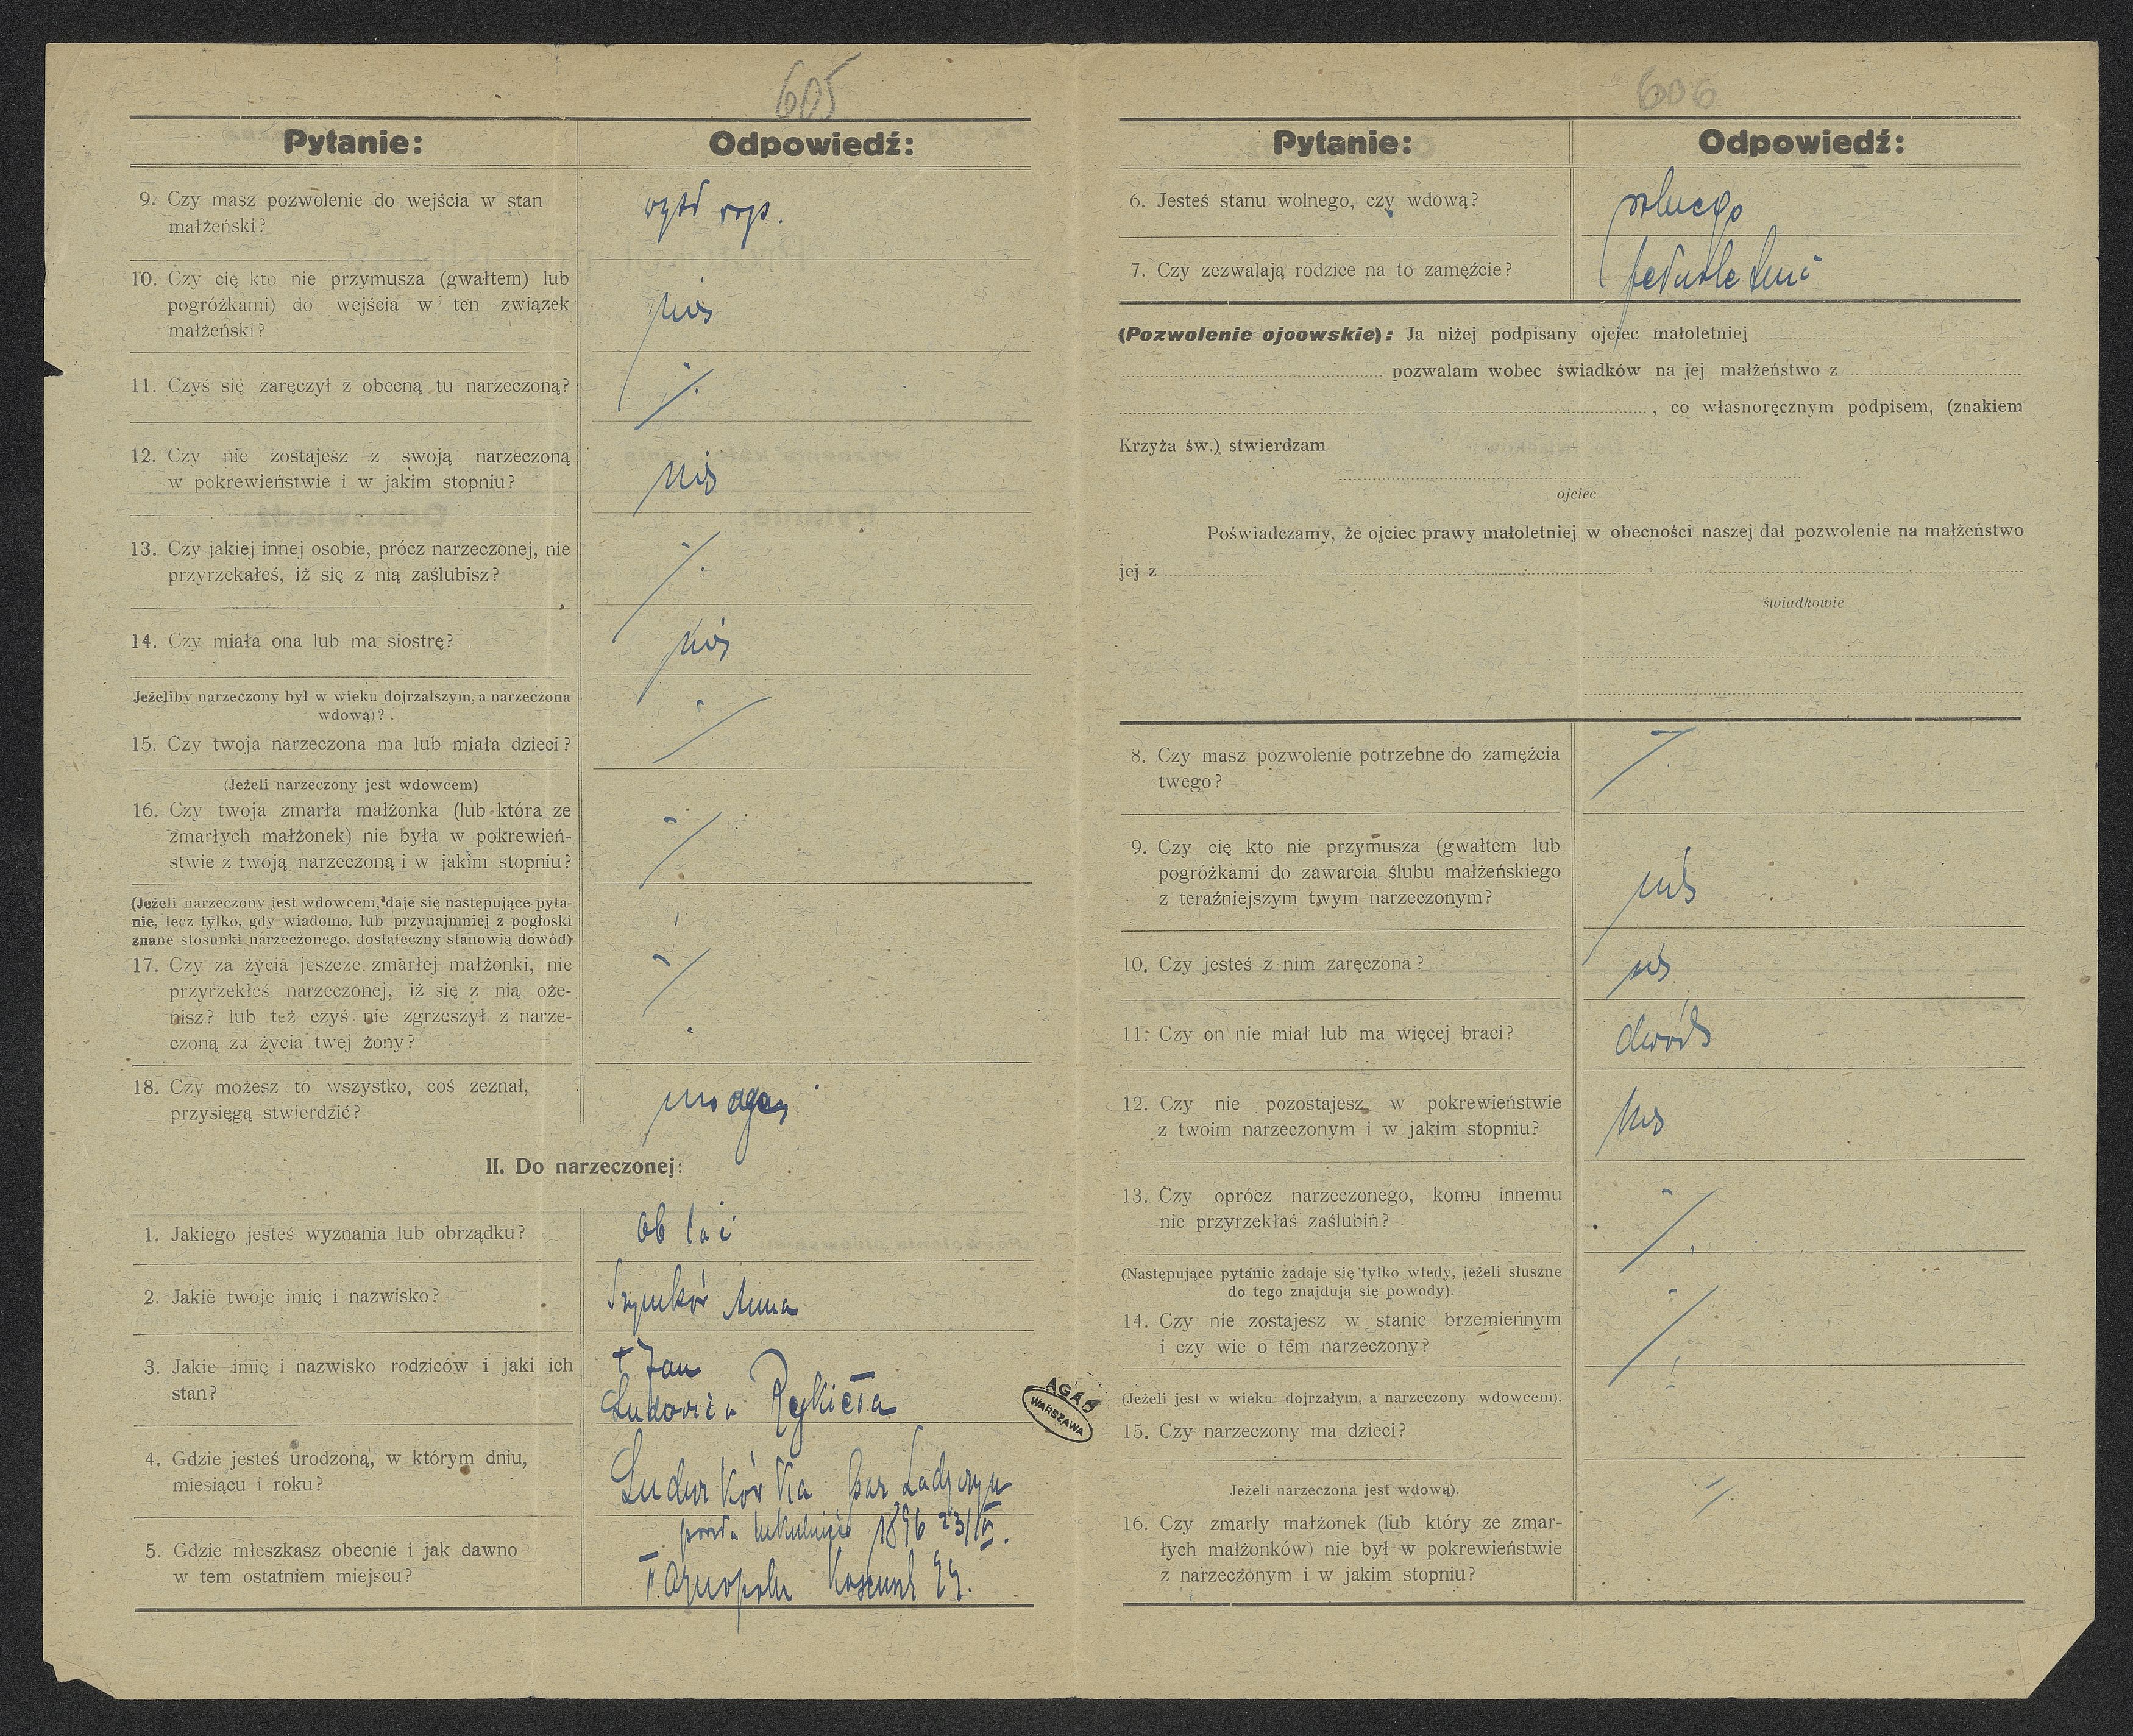 605
Pytanie:
Odpowiedź:
9. Czy masz pozwolenie do wejścia w stan
małżeński?
10. Czy cię kto nie przymusza (gwałtem) lub
pogróżkami) do wejścia w ten związek
małżeński?
nie
11. Czyś się zaręczył z obecną tu narzeczoną?
12. Czy nie zostajesz z swoją narzeczoną
w pokrewieństwie i w jakim stopniu?
nie
13. Czy jakiej innej osobie, prócz narzeczonej, nie
przyrzekałeś, iż się z nią zaślubisz?
14. Czy miała ona lub ma siostrę?
nie
Jeżeliby narzeczony był w wieku dojrzalszym, a narzeczona
wdową)?
15. Czy twoja narzeczona ma lub miała dzieci?
(Jeżeli narzeczony jest wdowcem)
16. Czy twoja zmarła małżonka (lub która ze
zmarłych małżonek) nie była w pokrewień-
stwie z twoją narzeczoną i w jakim stopniu?
(Jeżeli narzeczony jest wdowcem, daje się następujące pyta-
nie, lecz tylko, gdy wiadomo, lub przynajmniej z pogłoski
znane stosunki narzeczonego, dostateczny stanowią dowód)
17. Czy za życia jeszcze zmarłej małżonki, nie
przyrzekłeś narzeczonej, iż się z nią oże-
nisz? lub też czyś nie zgrzeszył z narze-
czoną za życia twej żony?
18. Czy możesz to wszystko, coś zeznał,
przysięgą stwierdzić?
mogę
II. Do narzeczonej:
1. Jakiego jesteś wyznania lub obrządku?
ob łać
2. Jakie twoje imię i nazwisko?
Szymków Anna
3. Jakie imię i nazwisko rodziców i jaki ich
stan?
† Jan
Ludowica Rykieta
4. Gdzie jesteś urodzoną, w którym dniu,
miesiącu i roku?
par Ladyczyn
1896
5. Gdzie mieszkasz obecnie i jak dawno
w tem ostatniem miejscu?
Tarnopolu
606
Pytanie:
Odpowiedź:
6. Jesteś stanu wolnego, czy wdową?
wolnego
7. Czy zezwalają rodzice na to zamęźcie?
pełnoletnia
(Pozwolenie ojcowskie): Ja niżej podpisany ojciec małoletniej
pozwalam wobec świadków na jej małżeństwo z
, co własnoręcznym podpisem, (znakiem
Krzyża św.) stwierdzam
ojciec
Poświadczamy, że ojciec prawy małoletniej w obecności naszej dał pozwolenie na małżeństwo
jej z
świadkowie
8. Czy masz pozwolenie potrzebne do zamęźcia
twego?
9. Czy cię kto nie przymusza (gwałtem lub
pogróżkami do zawarcia ślubu małżeńskiego
z teraźniejszym twym narzeczonym?
nie
10. Czy jesteś z nim zaręczona?
nie
11. Czy on nie miał lub ma więcej braci?
12. Czy nie pozostajesz w pokrewieństwie
z twoim narzeczonym i w jakim stopniu?
nie
13. Czy oprócz narzeczonego, komu innemu
nie przyrzekłaś zaślubin?
(Następujące pytanie zadaje się tylko wtedy, jeżeli słuszne
do tego znajdują się powody).
14. Czy nie zostajesz w stanie brzemiennym
i czy wie o tem narzeczony?
(Jeżeli jest w wieku dojrzałym, a narzeczony wdowcem).
15. Czy narzeczony ma dzieci?
Jeżeli narzeczona jest wdową).
16. Czy zmarły małżonek (lub który ze zmar-
łych małżonków) nie był w pokrewieństwie
z narzeczonym i w jakim stopniu?
AGAD
WARSZAWA